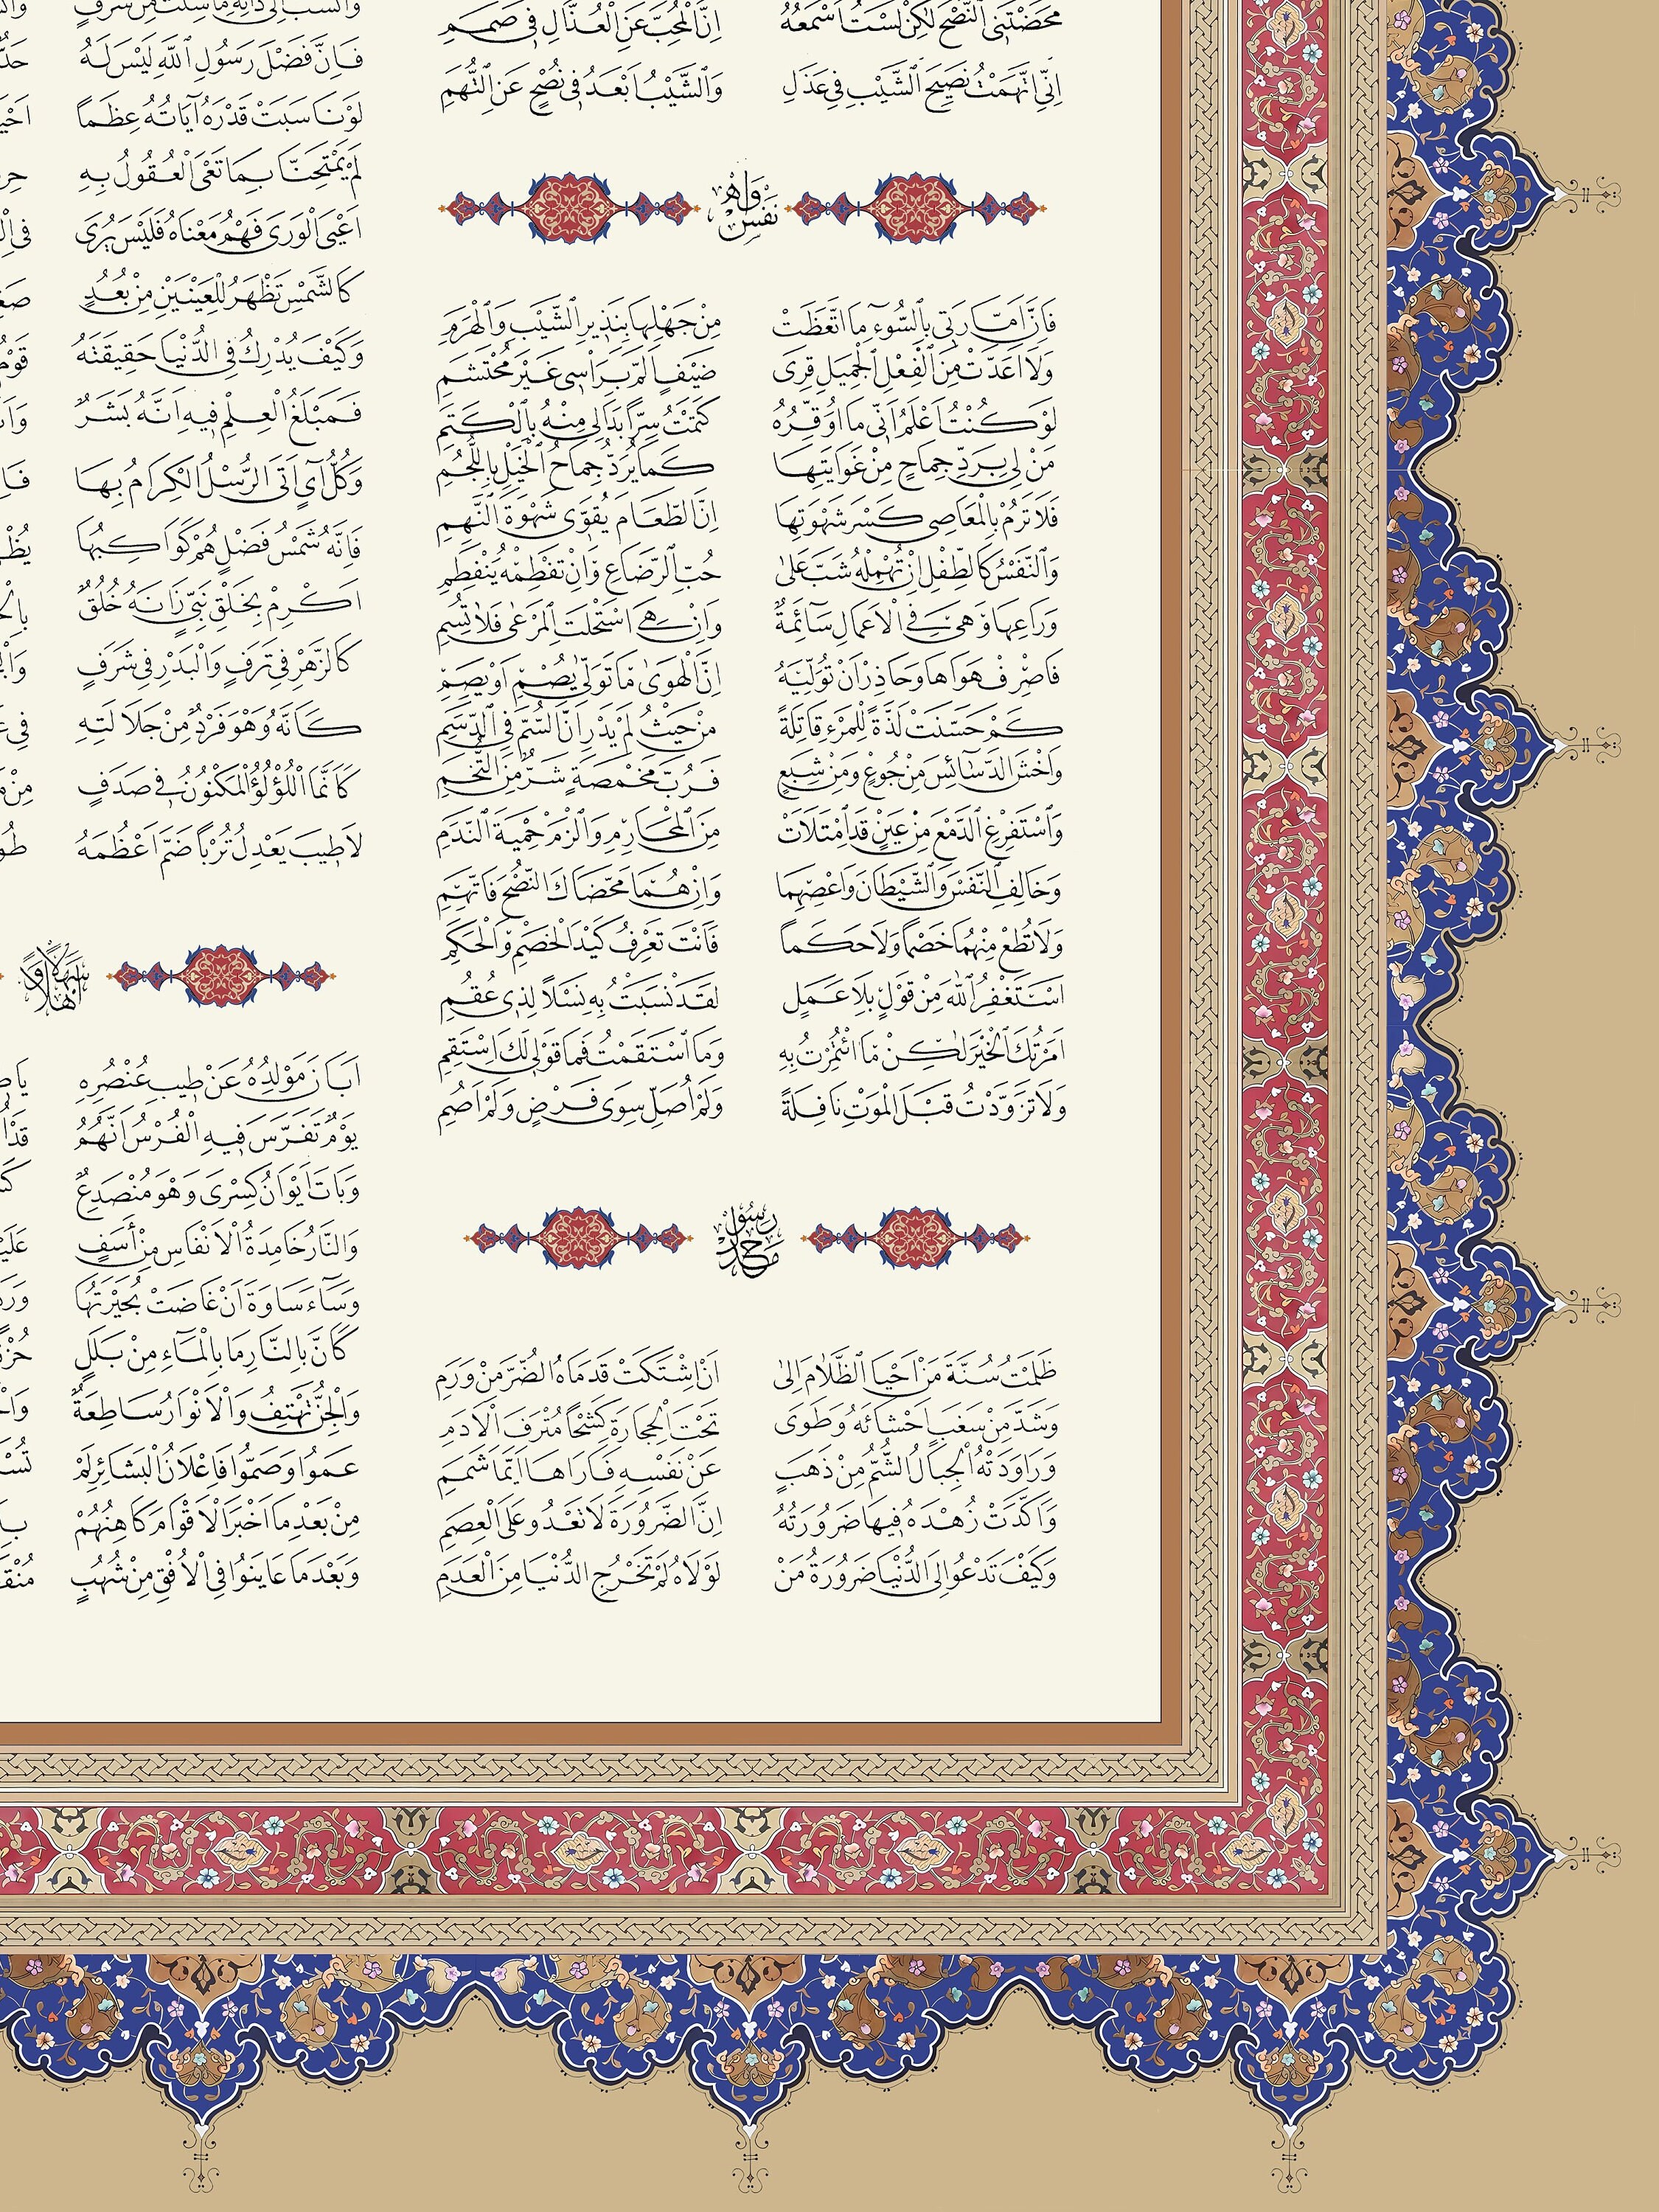 مَحَضْتَنِي النُّصْحَ لٰكِنْ لَسْتُ اَسْمَعُهُ اِنَّ الْمُحِبَّ عَنِ الْعُذَّالِ فِي صَمَمِ
اِنِّي اتَّهَمْتُ نَصِيحَ الشَّيْبِ فِي عَذَلِ وَالشَّيْبُ اَبْعَدُ فِي نُصْحٍ عَنِ التُّهَمِ
فَاِنَّ اَمَّارَتِي بِالسُّوءِ مَا اتَّعَظَتْ مِنْ جَهْلِهَا بِنَذِيرِ الشَّيْبِ وَالْهَرَمِ
وَلَا اَعَدَّتْ مِنَ الْفِعْلِ الْجَمِيلِ قِرَى ضَيْفٍ اَلَمَّ بِرَاْسِي غَيْرَ مُحْتَشَمِ
لَوْ كُنْتُ اَعْلَمُ اَنِّي مَا اُوَقِّرُهُ كَتَمْتُ سِرًّا بَدَا لِي مِنْهُ بِالْكَتَمِ
مَنْ لِي بِرَدِّ جِمَاحٍ مِنْ غَوَايَتِهَا كَمَا يُرَدُّ جِمَاحُ الْخَيْلِ بِاللُّجُمِ
فَلَا تَرُمْ بِالْمَعَاصِي كَسْرَ شَهْوَتِهَا اِنَّ الطَّعَامَ يُقَوِّي شَهْوَةَ النَّهِمِ
وَالنَّفْسُ كَالطِّفْلِ اِنْ تُهْمِلْهُ شَبَّ عَلَىٰ حُبِّ الرَّضَاعِ وَاِنْ تَفْطِمْهُ يَنْفَطِمِ
وَرَاعِهَا وَهْيَ فِي الْاَعْمَالِ سَآئِمَةٌ وَاِنْ هِيَ اسْتَحْلَتِ الْمَرْعٰى فَلَا تُسِمِ
فَاصْرِفْ هَوَاهَا وَحَاذِرْ اَنْ تُوَلِّيَهُ اِنَّ الْهَوٰى مَا تَوَلّٰى يُصْمِ اَوْ يَصِمِ
كَمْ حَسَّنَتْ لَذَّةً لِلْمَرْءِ قَاتِلَةً مِنْ حَيْثُ لَمْ يَدْرِ اَنَّ السُّمَّ فِي الدَّسَمِ
وَاخْشَ الدَّسَآئِسَ مِنْ جُوعٍ وَمِنْ شِبَعٍ فَرُبَّ مَخْمَصَةٍ شَرٌّ مِنَ التُّخَمِ
وَاسْتَفْرِغِ الدَّمْعَ مِنْ عَيْنٍ قَدِ امْتَلَاَتْ مِنَ الْمَحَارِمِ وَالْزَمْ حِمْيَةَ النَّدَمِ
وَخَالِفِ النَّفْسَ وَالشَّيْطَانَ وَاعْصِهِمَا وَاِنْ هُمَا مَحَّضَاكَ النُّصْحَ فَاتَّهِمِ
وَلَا تُطِعْ مِنْهُمَا خَصْمًا وَلَا حَكَمًا فَاَنْتَ تَعْرِفُ كَيْدَ الْخَصْمِ وَالْحَكَمِ
اَسْتَغْفِرُ اللّٰهَ مِنْ قَوْلٍ بِلَا عَمَلٍ لَقَدْ نَسَبْتُ بِهِ نَسْلًا لِذِي عُقُمِ
اَمَرْتُكَ الْخَيْرَ لٰكِنْ مَا ائْتَمَرْتُ بِهِ وَمَا اسْتَقَمْتُ فَمَا قَوْلِي لَكَ اسْتَقِمِ
وَلَا تَزَوَّدْتُ قَبْلَ الْمَوْتِ نَافِلَةً وَلَمْ اُصَلِّ سِوَى فَرْضٍ وَلَمْ اَصُمِ
رسول محمد
ظَلَمْتُ سُنَّةَ مَنْ اَحْيَا الظَّلَامَ اِلٰى اَنِ اشْتَكَتْ قَدَمَاهُ الضُّرَّ مِنْ وَرَمِ
وَشَدَّ مِنْ سَغَبٍ اَحْشَائَهُ وَطَوَى تَحْتَ الْحِجَارَةِ كَشْحًا مُتْرَفَ الْاَدَمِ
وَرَاوَدَتْهُ الْجِبَالُ الشُّمُّ مِنْ ذَهَبٍ عَنْ نَفْسِهِ فَاَرَاهَا اَيَّمَا شَمَمِ
وَاَكَّدَتْ زُهْدَهُ فِيهَا ضَرُورَتُهُ اِنَّ الضَّرُورَةَ لَا تَعْدُو عَلَى الْعِصَمِ
وَكَيْفَ تَدْعُو اِلَى الدُّنْيَا ضَرُورَةُ مَنْ لَوْلَاهُ لَمْ تَخْرُجِ الدُّنْيَا مِنَ الْعَدَمِ
وَانْسُبْ اِلَى ذَاتِهِ مَا شِئْتَ مِنْ شَرَفٍ
فَاِنَّ فَضْلَ رَسُولِ اللّٰهِ لَيْسَ لَهُ
لَوْ نَاسَبَتْ قَدْرَهُ آيَاتُهُ عِظَمًا
لَمْ يَمْتَحِنَّا بِمَا تَعْيَ الْعُقُولُ بِهِ
اَعْيَى الْوَرَى فَهْمُ مَعْنَاهُ فَلَيْسَ يُرَى
كَالشَّمْسِ تَظْهَرُ لِلْعَيْنَيْنِ مِنْ بُعُدٍ
وَكَيْفَ يُدْرِكُ فِي الدُّنْيَا حَقِيقَتَهُ
فَمَبْلَغُ الْعِلْمِ فِيهِ اَنَّهُ بَشَرٌ
وَكُلُّ آيٍ اَتَى الرُّسْلُ الْكِرَامُ بِهَا
فَاِنَّهُ شَمْسُ فَضْلٍ هُمْ كَوَاكِبُهَا
اَكْرِمْ بِخَلْقِ نَبِيٍّ زَانَهُ خُلُقٌ
كَالزَّهْرِ فِي تَرَفٍ وَالْبَدْرِ فِي شَرَفٍ
كَاَنَّهُ وَهْوَ فَرْدٌ مِنْ جَلَالَتِهِ
كَاَنَّمَا اللُّؤْلُؤُ الْمَكْنُونُ فِي صَدَفٍ
لَا طِيبَ يَعْدِلُ تُرْبًا ضَمَّ اَعْظُمَهُ
اَبَانَ مَوْلِدُهُ عَنْ طِيبِ عُنْصُرِهِ
يَوْمٌ تَفَرَّسَ فِيهِ الْفُرْسُ اَنَّهُمُ
وَبَاتَ اَيْوَانُ كِسْرَى وَهْوَ مُنْصَدِعٌ
وَالنَّارُ خَامِدَةُ الْاَنْفَاسِ مِنْ أَسَفٍ
وَسَآءَ سَاوَةَ اَنْ غَاضَتْ بُحَيْرَتُهَا
كَاَنَّ بِالنَّارِ مَا بِالْمَآءِ مِنْ بَلَلٍ
وَالْجِنُّ تَهْتِفُ وَالْاَنْوَارُ سَاطِعَةٌ
عَمُوا وَصَمُّوا فَاِعْلَانُ الْبَشَائِرِ لَمْ
مِنْ بَعْدِ مَا اَخْبَرَ الْاَقْوَامَ كَاهِنُهُمْ
وَبَعْدَ مَا عَايَنُوا فِي الْاُفْقِ مِنْ شُهُبٍ